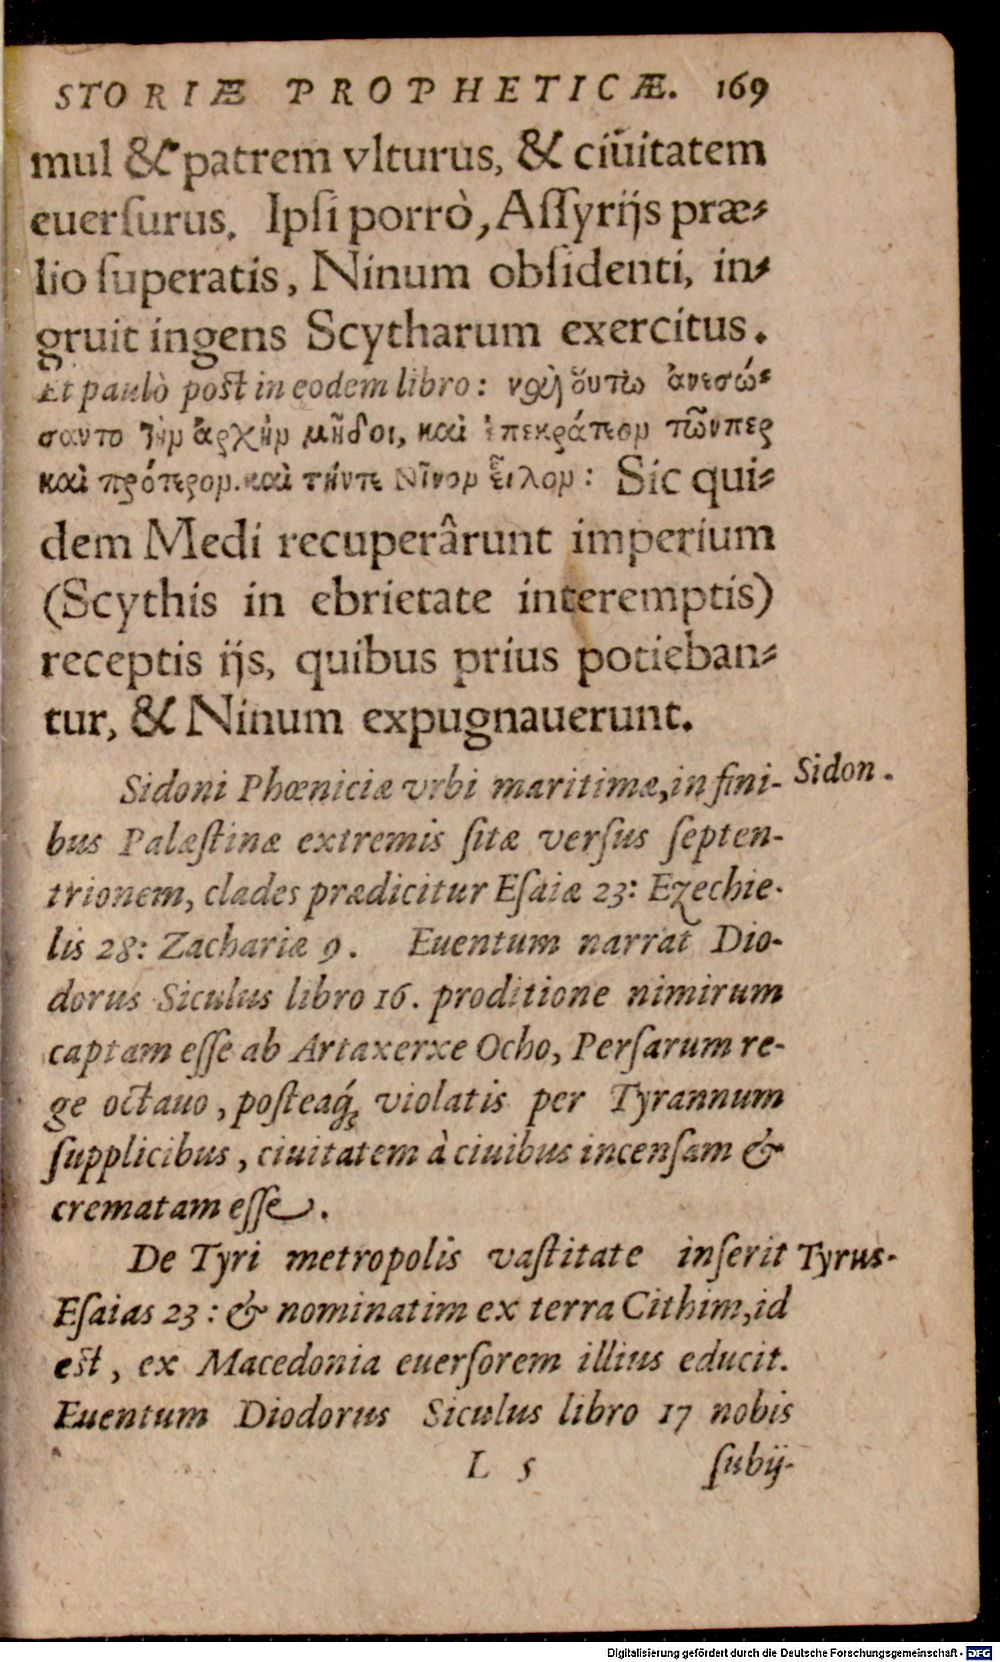 STORIÆ PROPHETICÆ. 169
mul & patrem vlturus, & ciuitatem
euerſurus. Ipſi porrò, Aſſyrijs præ-
lio ſuperatis, Ninum obſidenti, in-
gruit ingens Scytharum exercitus.
Et paulò post in eodem libro: καὶ ὅυτω ἀνεσώ-
σαντο τὴν ἀρχὴν μῆδοι, καὶ ἐπεκράτεον τῶνπερ
καὶ πρότερον. καὶ τήντε Νῖνον εἷλον: Sic qui-
dem Medi recuperârunt imperium
(Scythis in ebrietate interemptis)
receptis ijs, quibus prius potieban-
tur, & Ninum expugnauerunt.
Sidoni Phœniciæ vrbi maritimæ, in fini- Sidon.
bus Palæſtinæ extremis ſitæ verſus ſepten-
trionem, clades prædicitur Eſaiæ 23: Ezechie-
lis 28: Zachariæ 9. Euentum narrat Dio-
dorus Siculus libro 16. proditione nimirum
captam eſſe ab Artaxerxe Ocho, Perſarum re-
ge octauo, poſteaq́ꝫ violatis per Tyrannum
ſupplicibus, ciuitatem à ciuibus incenſam &
crematam eſſe.
De Tyri metropolis vaſtitate inſerit Tyrus.
Eſaias 23: & nominatim ex terra Cithim, id
est, ex Macedonia euerſorem illius educit.
Euentum Diodorus Siculus libro 17 nobis
L 5 ſubij-
Digitalisierung gefördert durch die Deutsche Forschungsgemeinschaft - DFG